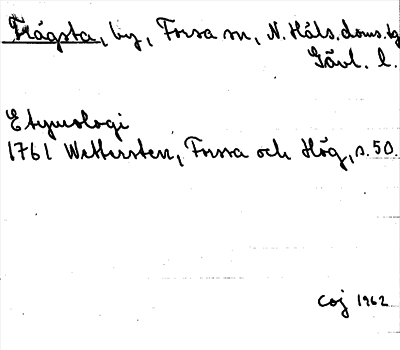 Frägsta, by, Forsa sn, N. Häls. doms. tg
Gävl. l.
Etymologi
1761 Wettersten, Forsa och Hög, s. 50.
Coj 1962